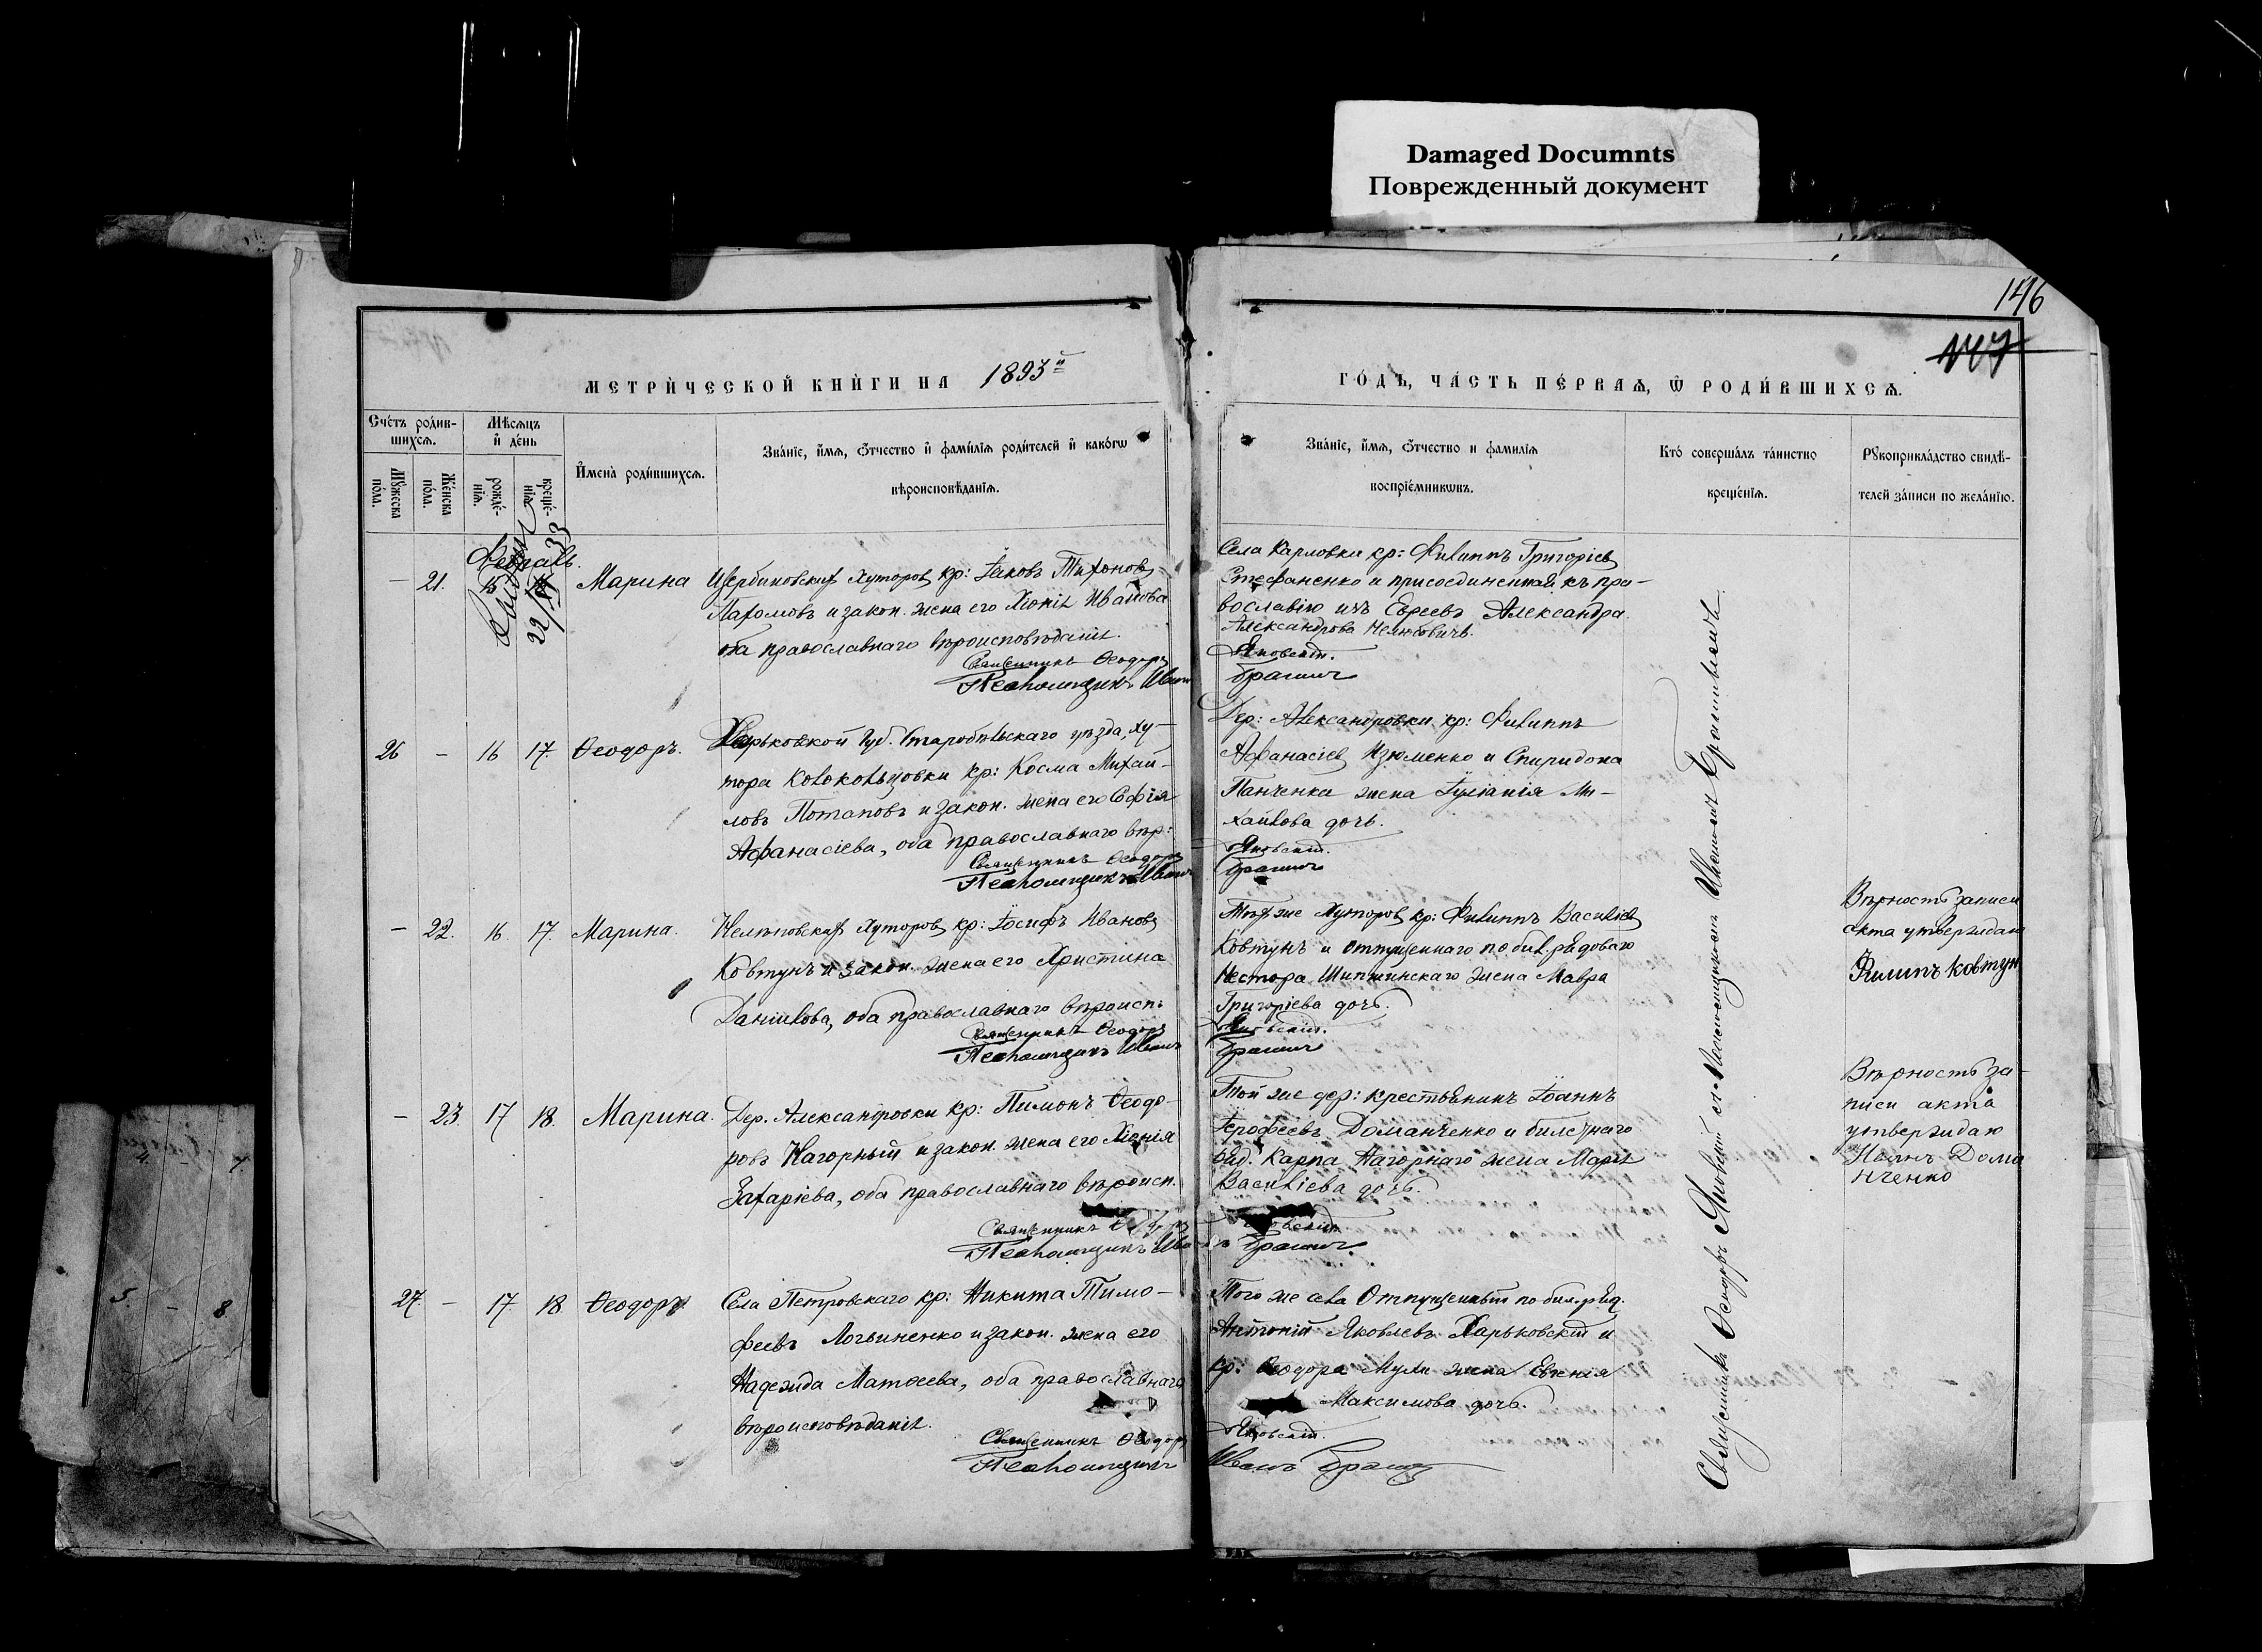 Damaged Documnts
Поврежденный документ
146
147
МЕТРИЧЕСКОЙ КНИГИ НА 1893й
ГОДЪ, ЧАСТЬ ПЕРВАЯ, Ѡ РОДИВШИХСЯ.
Счетъ родив-
шихся.
Мѣсяцъ
и день
Мужеска
пола.
Женска
пола.
рожде-
нія.
креще-
нія.
Имена родившихся.
Званіе, имя, отчество и фамилія родителей и какогѡ
вѣроисповѣданія.
Званіе, имя, отчество и фамилія
воспріемникѡвъ.
Кто совершалъ таинство
крещенія.
Рукоприкладство свидѣ-
телей записи по желанію.
Февраль.
22/
33
— 21. 15 Марина
Щербиновских Хуторов кр: Іаковъ Тихонов
Пахомовъ и закон. жена его Хіонія Иванова
оба православнаго вѣроисповѣданія.
Священникъ Ѳеодоръ
Псаломщикъ Иванъ
Села Карловки кр: Филиппъ Григоріев
Стефаненко и присоединенная къ пра-
вославію изъ Евреевъ Александра
Александрова
Яновскій.
26 — 16 17. Ѳеодоръ.
Харьковской Губ. Старобѣльскаго уѣзда, ху-
тора Колокольцовки кр: Косма Михай-
ловъ Потаповъ и закон. жена его Софія
Афанасіева, оба православнаго вѣр:
Священникъ Ѳеодоръ
Псаломщикъ Иванъ
Дер: Александровки кр: Филиппъ
Афанасіев Изюменко и Спиридона
Панченка жена Іуліанія Ми-
хайлова дочь.
Яновскій.
— 22. 16. 17. Марина.
Нелѣповских Хуторов кр: Іосифъ Иванов
Ковтунъ и закон. жена его Христина
Даніилова, оба православнаго вѣроисп:
Священникъ Ѳеодоръ
Псаломщикъ Иванъ
Тѣх же Хуторов кр: Филиппъ Василіев
Ковтунъ и отпущеннаго по бил. рядоваго
Нестора Шипжинскаго жена Мавра
Григоріева дочь.
Яновскій.
Вѣрность записи
акта утверждаю
Филипъ Ковтун
— 23. 17 18. Марина.
Дер. Александровки кр: Пимонъ Ѳеодо-
ровъ Нагорный и закон. жена его Хіонія
Захаріева, оба православнаго вѣроисп.
Священникъ
Псаломщикъ Ива
Той же дер: крестьянинъ Іоаннъ
Іерофеевъ Доманченко и билетнаго
ряд. Карпа Нагорнаго жена Марія
Василіева дочь.
Вѣрность за-
писи акта
утверждаю
Иванъ Дома
нченко
27. — 17. 18 Ѳеодоръ
Села Петровскаго кр: Никита Тимо-
феевъ Логвиненко и закон. жена его
Надежда Матѳеева, оба православнаго
вѣроисповѣданія.
Священникъ Ѳеодоръ
Псаломщикъ
Того же села Отпущенный по бил. ряд.
Антоній Яковлевъ Харьковскій и
кр: Ѳеодора Мули жена Евгенія
Максимова дочь.
Яновскій.
Иванъ
Священникъ Ѳеодоръ Яновскій съ Псаломщикомъ Иваномъ